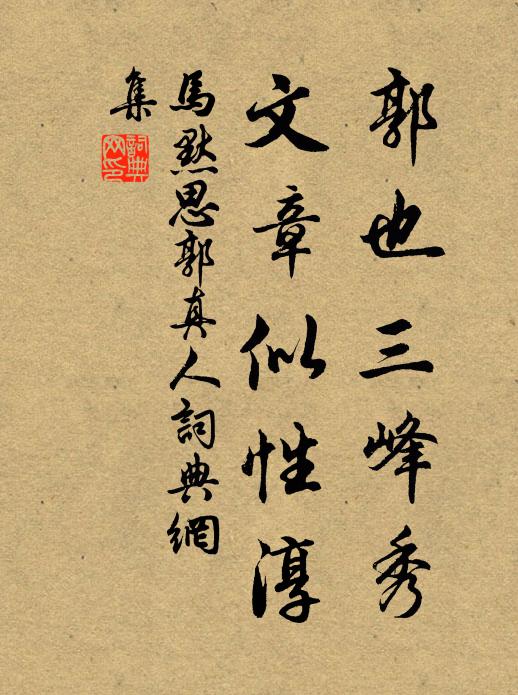 郭也三峰秀
文章似性淳
馬默思郭真人詞典網
集
詞典
网印